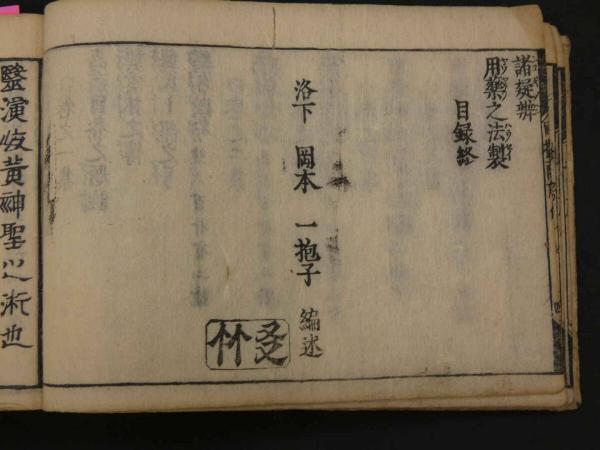 諸疑辨
用藥之法製
目録終
洛下 岡本 一抱子 編述
醫演岐黄神聖之術也